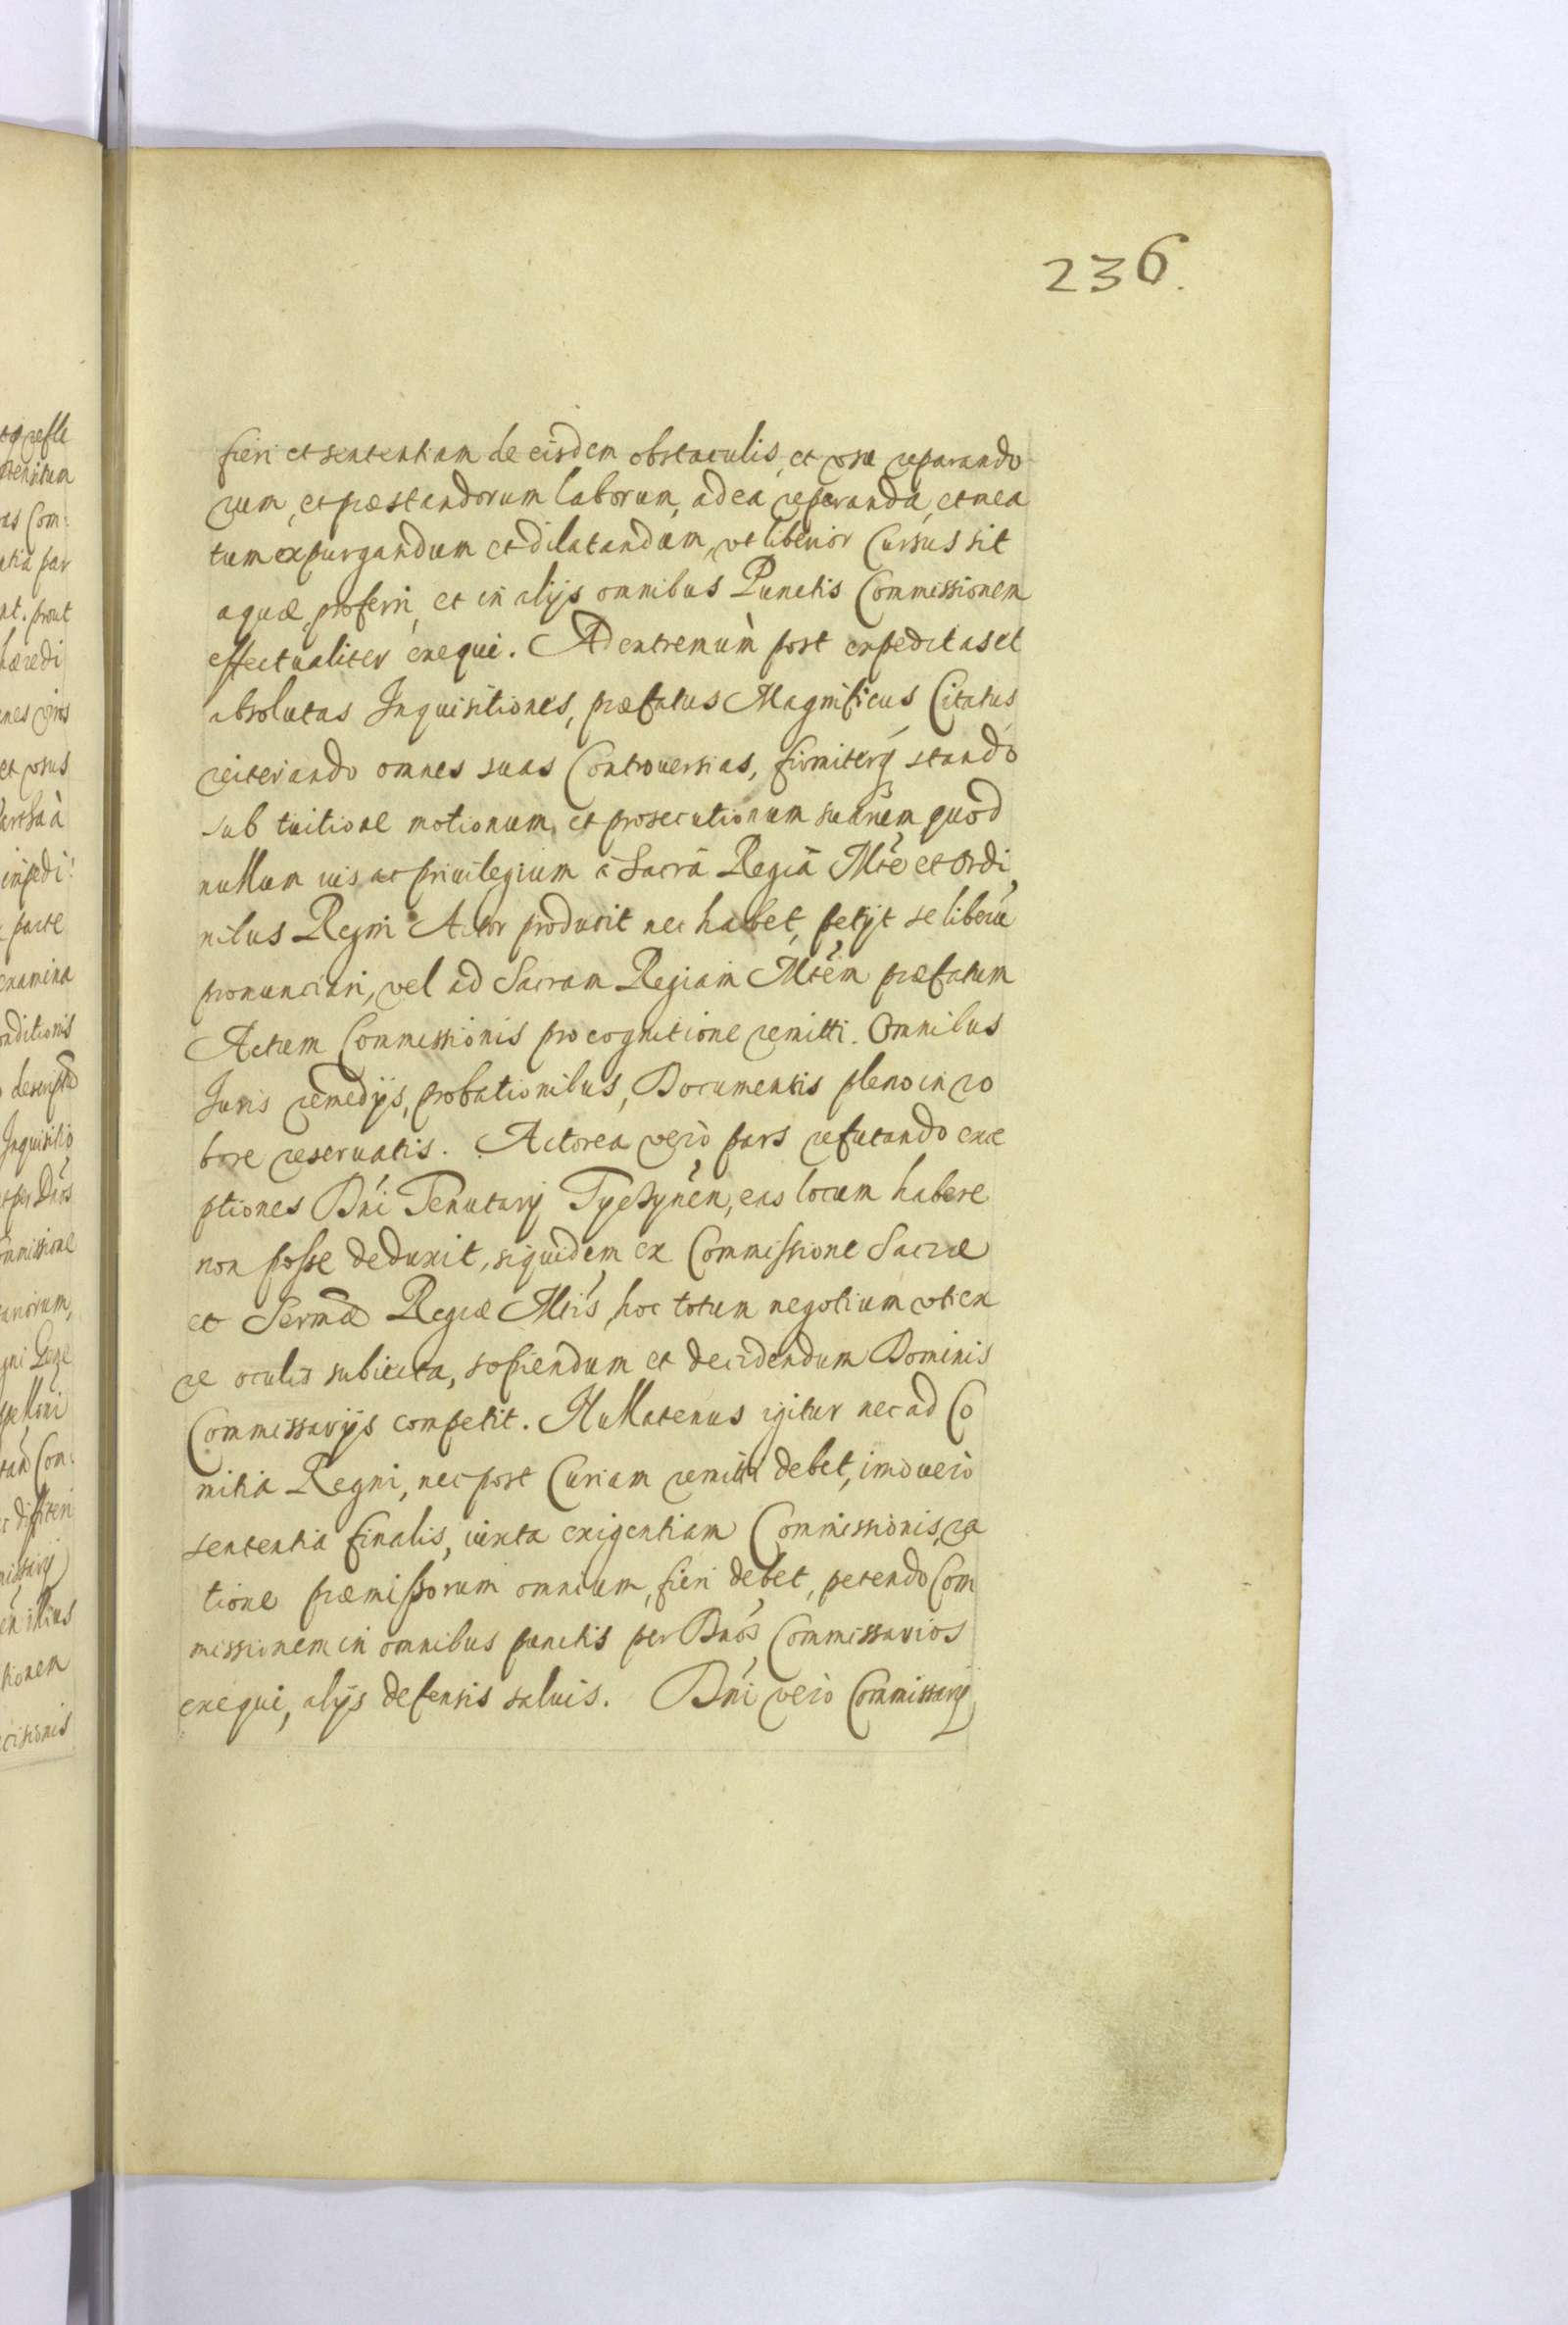 236.
fieri et sententiam de eisdem obstaculis, et usu reparando
rum, et præstandorum laborum, ad ea reparanda, et mea
tum expurgandum et dilatandum, ut liberior Cursus sit
aquæ, proferri, et in alijs omnibus Punctis Commissionem
effectualiter exequi. Ad extremum post expeditas et
absolutas Inquisitiones, præfatus Magnificus Citatus
reiterando omnes suas Controuersias, firmiterq́ stando
sub tuitione motionum, et prosecutionum suarum, quod
nullum ius ac priuilegium à Sacrâ Regiâ Mtte et Ordi
nibus Regni Actor produxit nec habet, petijt se liberũ
pronunciari, vel ad Sacram Regiam Mttem præfatum
Actum Commissionis pro cognitione remitti. Omnibus
Juris remedijs, probationibus, Documentis pleno in ro
bore reseruatis. Actorea verò pars refutando exce
ptiones Dni Tenutarij Tyczynen, eas locum habere
non posse deduxit, siquidem ex Commissione Sacræ
et Sermæ Regiæ Mttis, hoc totum negotium uti ex
re oculis subiecta, sopiendum et decidendum Dominis
Commissarijs competit. Nullatenus igitur nec ad Co
mitia Regni, nec post Curiam remitti debet, imò verò
sententia finalis, iuxta exigentiam Commissionis, ra
tione præmissorum omnium, fieri debet, petendo Com
missionem in omnibus punctis per Dnos Commissarios
exequi, alijs defensis saluis. Dni verò Commissarij